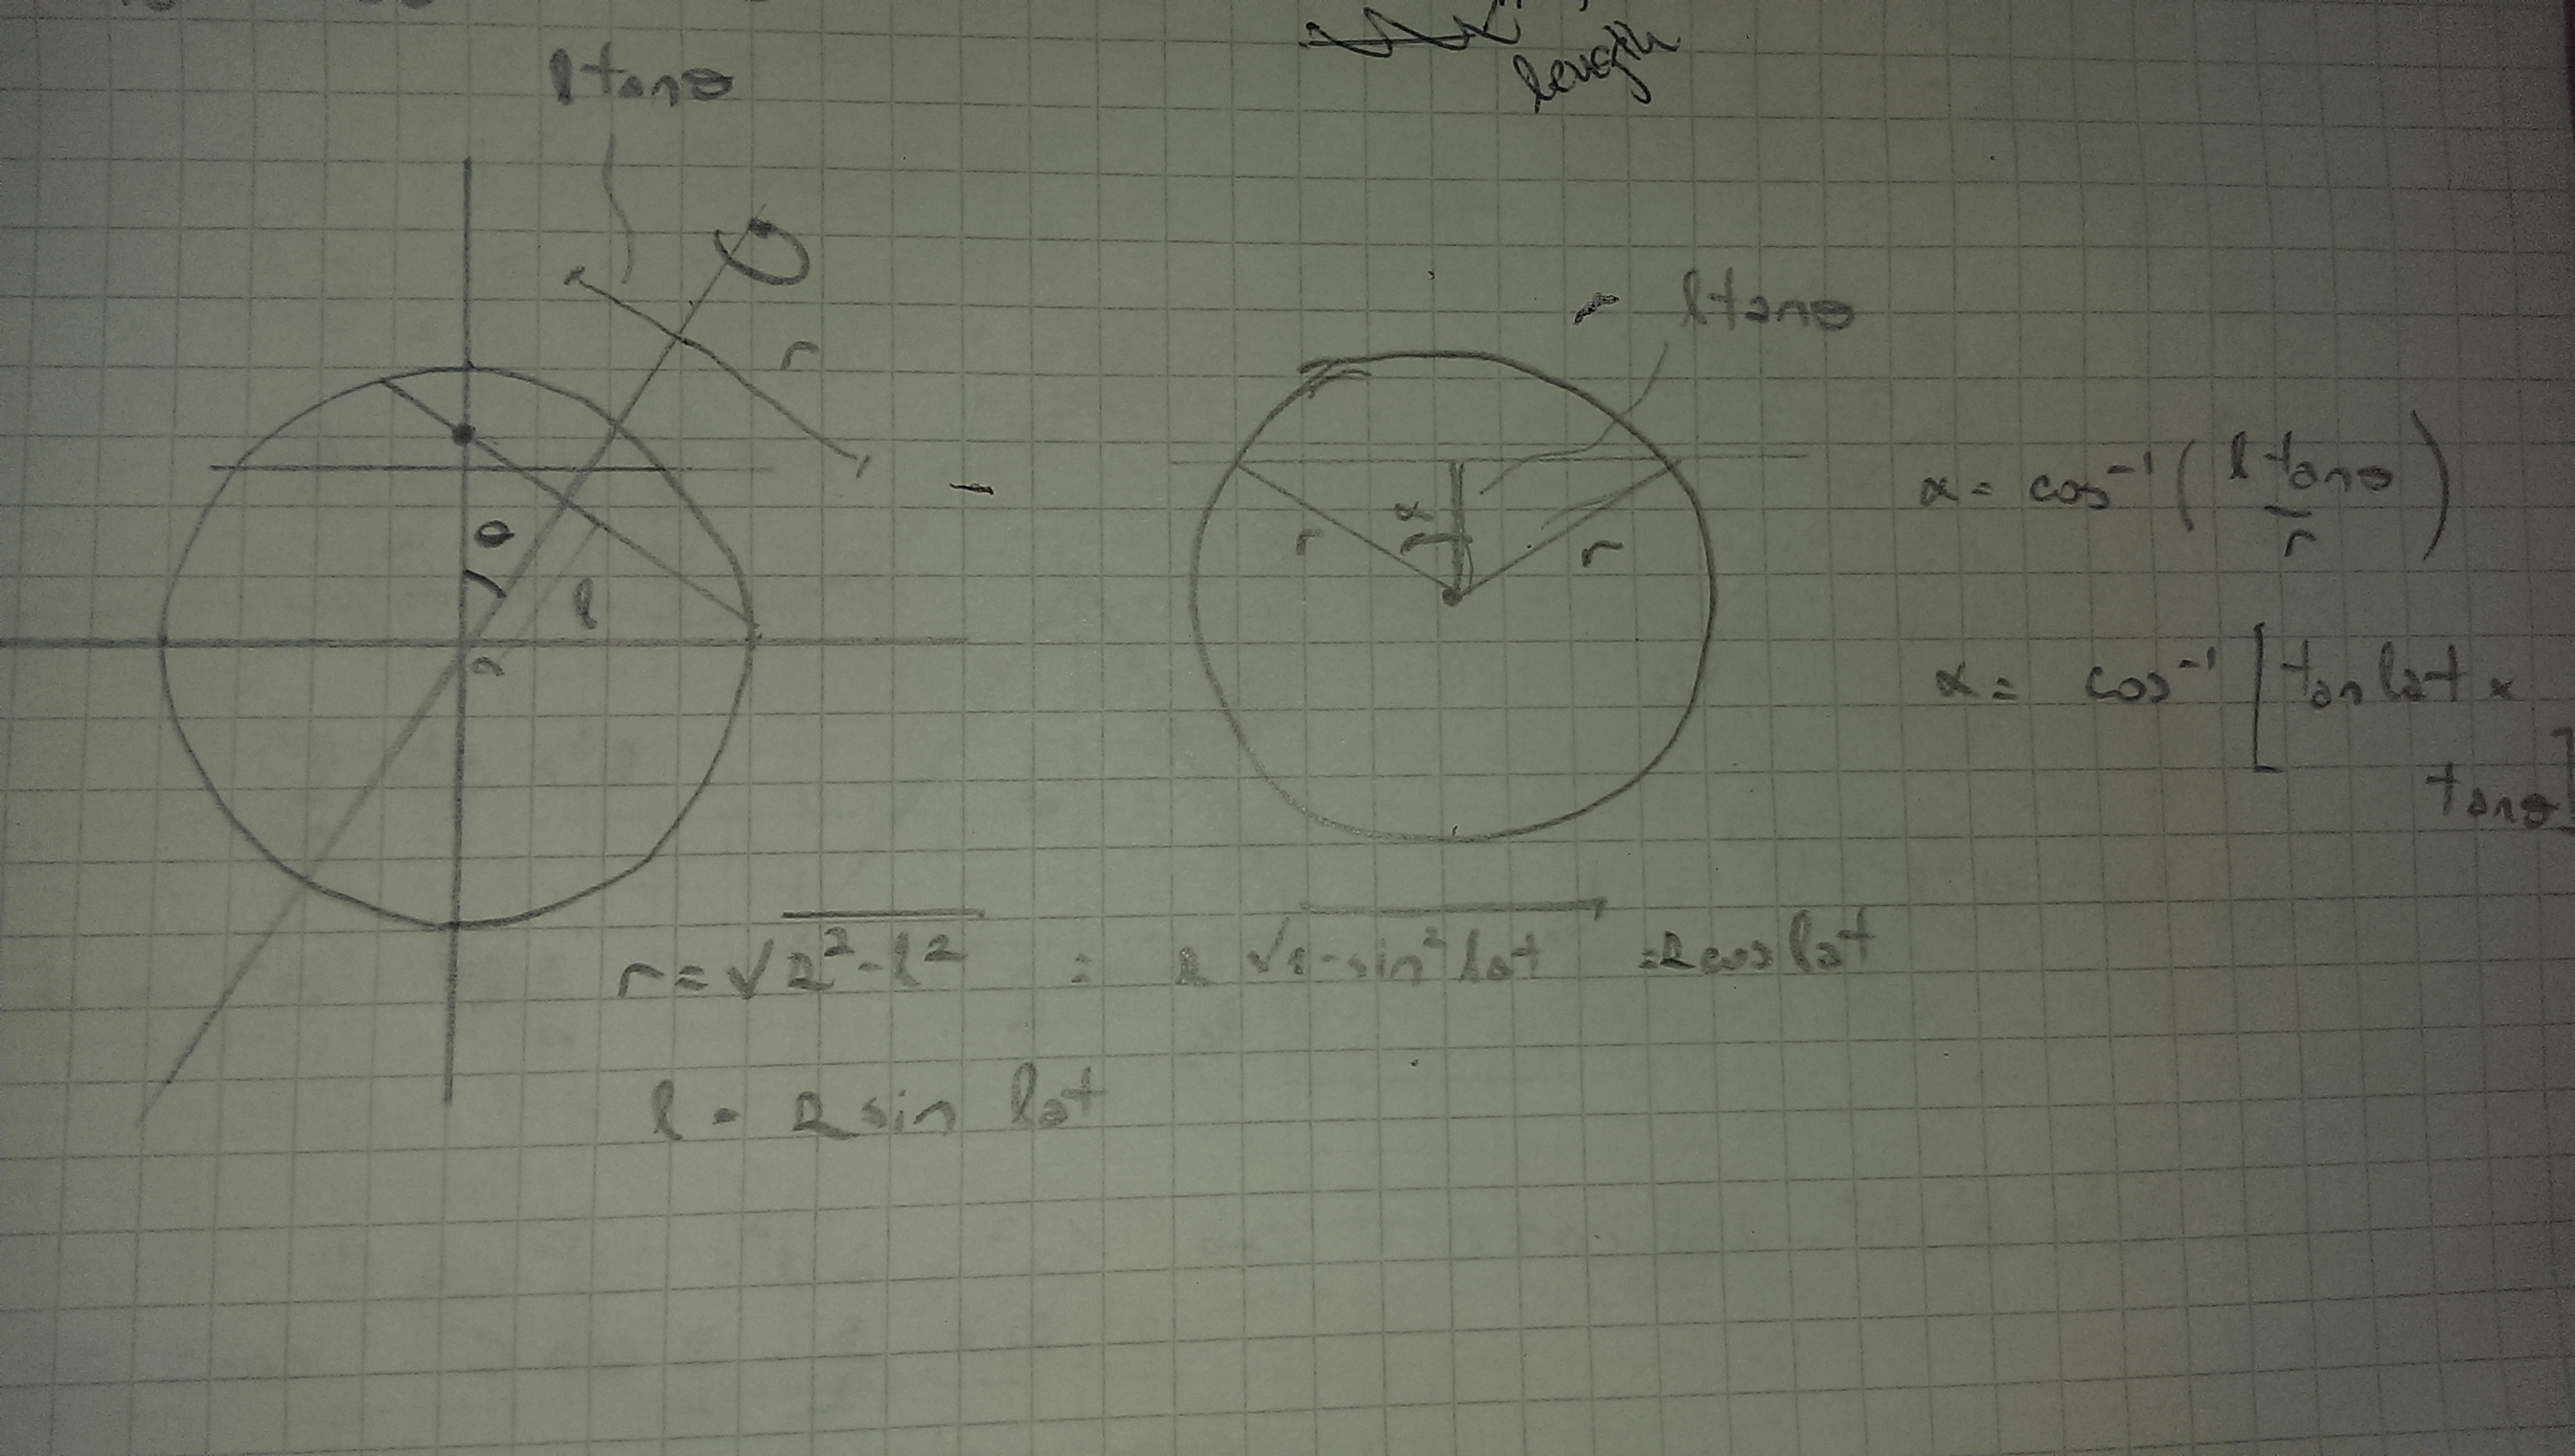 length
l tanθ
r
θ
l
l tanθ
α
r
r
α = cos⁻¹ ( l tanθ / r )
α = cos⁻¹ [ tan lat ×
tanθ ]
r = √R² - l² = R √1 - sin² lat = R cos lat
l = R sin lat